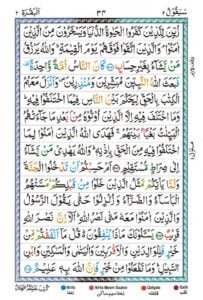 اَلْبَقَرَة ٢
٣٤
سَيَقُوْل ٢
زُيِّنَ لِلَّذِيْنَ كَفَرُوا الْحَيٰوةُ الدُّنْيَا وَيَسْخَرُوْنَ مِنَ الَّذِيْنَ
اٰمَنُوْا ۘ وَالَّذِيْنَ اتَّقَوْا فَوْقَهُمْ يَوْمَ الْقِيٰمَةِ ؕ وَاللّٰهُ يَرْزُقُ
مَنْ يَّشَآءُ بِغَيْرِ حِسَابٍ كَانَ النَّاسُ اُمَّةً وَّاحِدَةً
فَبَعَثَ اللّٰهُ النَّبِيّٖنَ مُبَشِّرِيْنَ وَمُنْذِرِيْنَ وَاَنْزَلَ مَعَهُمُ
الْكِتٰبَ بِالْحَقِّ لِيَحْكُمَ بَيْنَ النَّاسِ فِيْمَا اخْتَلَفُوْا فِيْهِ ؕ وَمَا
اخْتَلَفَ فِيْهِ اِلَّا الَّذِيْنَ اُوْتُوْهُ مِنْۢ بَعْدِ مَا جَآءَتْهُمُ
الْبَيِّنٰتُ بَغْيًاۢ بَيْنَهُمْ ۚ فَهَدَى اللّٰهُ الَّذِيْنَ اٰمَنُوْا لِمَا
اخْتَلَفُوْا فِيْهِ مِنَ الْحَقِّ بِاِذْنِهٖ ؕ وَاللّٰهُ يَهْدِيْ مَنْ يَّشَآءُ
اِلٰى صِرَاطٍ مُّسْتَقِيْمٍ اَمْ حَسِبْتُمْ اَنْ تَدْخُلُوا الْجَنَّةَ
وَلَمَّا يَاْتِكُمْ مَّثَلُ الَّذِيْنَ خَلَوْا مِنْ قَبْلِكُمْ ؕ مَسَّتْهُمُ
الْبَاْسَآءُ وَالضَّرَّآءُ وَزُلْزِلُوْا حَتّٰى يَقُوْلَ الرَّسُوْلُ وَالَّذِيْنَ
اٰمَنُوْا مَعَهٗ مَتٰى نَصْرُ اللّٰهِ ؕ اَلَآ اِنَّ نَصْرَ اللّٰهِ
قَرِيْبٌ يَسْـَٔلُوْنَكَ مَاذَا يُنْفِقُوْنَ ؕ قُلْ مَآ اَنْفَقْتُمْ مِّنْ
خَيْرٍ فَلِلْوَالِدَيْنِ وَالْاَقْرَبِيْنَ وَالْيَتٰمٰى وَالْمَسٰكِيْنِ وَابْنِ
السَّبِيْلِ ؕ وَمَا تَفْعَلُوْا مِنْ خَيْرٍ فَاِنَّ اللّٰهَ بِهٖ عَلِيْمٌ